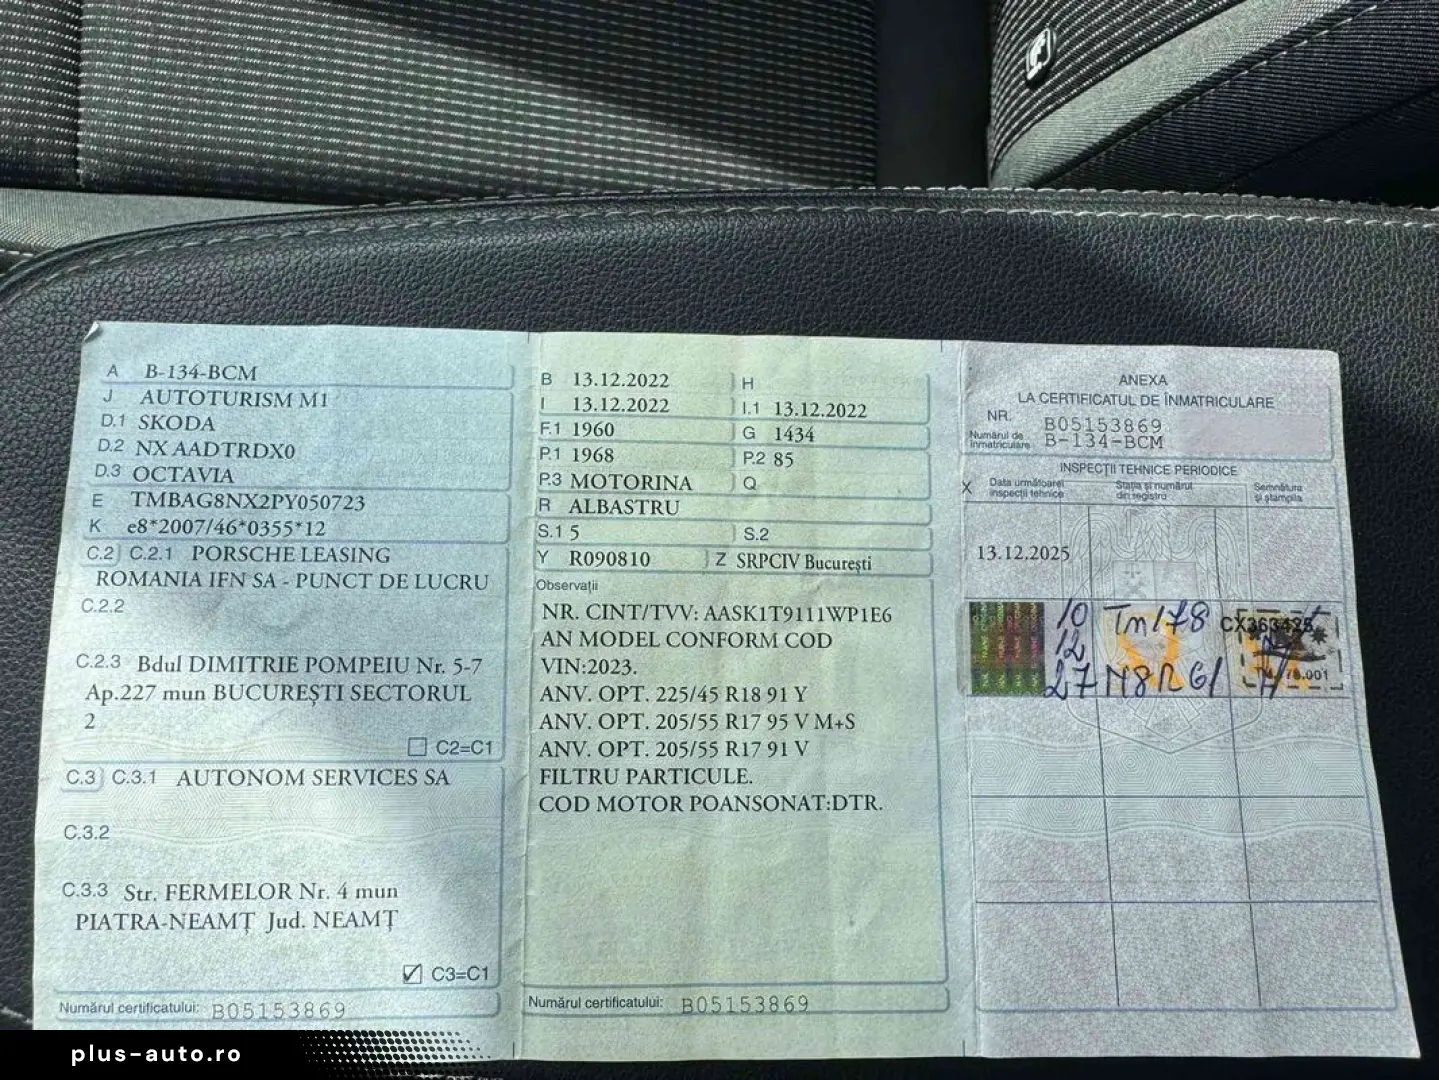 A B-134-BCM
J AUTOTURISM M1
D.1 SKODA
D.2 NX AADTRDX0
D.3 OCTAVIA
E TMBAG8NX2PY050723
K e8*2007/46*0355*12
C.2 C.2.1 PORSCHE LEASING
ROMANIA IFN SA - PUNCT DE LUCRU
C.2.2
C.2.3 Bdul DIMITRIE POMPEIU Nr. 5-7
Ap.227 mun BUCUREȘTI SECTORUL
2
C2=C1
C.3 C.3.1 AUTONOM SERVICES SA
C.3.2
C.3.3 Str. FERMELOR Nr. 4 mun
PIATRA-NEAMȚ Jud. NEAMȚ
C3=C1
Numărul certificatului: B05153869
B 13.12.2022 H
I 13.12.2022 I.1 13.12.2022
F.1 1960 G 1434
P.1 1968 P.2 85
P.3 MOTORINA Q
R ALBASTRU
S.1 5 S.2
Y R090810 Z SRPCIV București
Observații
NR. CINT/TVV: AASK1T9111WP1E6
AN MODEL CONFORM COD
VIN:2023.
ANV. OPT. 225/45 R18 91 Y
ANV. OPT. 205/55 R17 95 V M+S
ANV. OPT. 205/55 R17 91 V
FILTRU PARTICULE.
COD MOTOR POANSONAT:DTR.
Numărul certificatului: B05153869
ANEXA
LA CERTIFICATUL DE ÎNMATRICULARE
NR. B05153869
Numărul de înmatriculare B-134-BCM
INSPECȚII TEHNICE PERIODICE
X Data următoarei inspecții tehnice Stația și numărul din registru Semnătura și ștampila
13.12.2025
10 Tm178 CX363425
12
27
plus-auto.ro